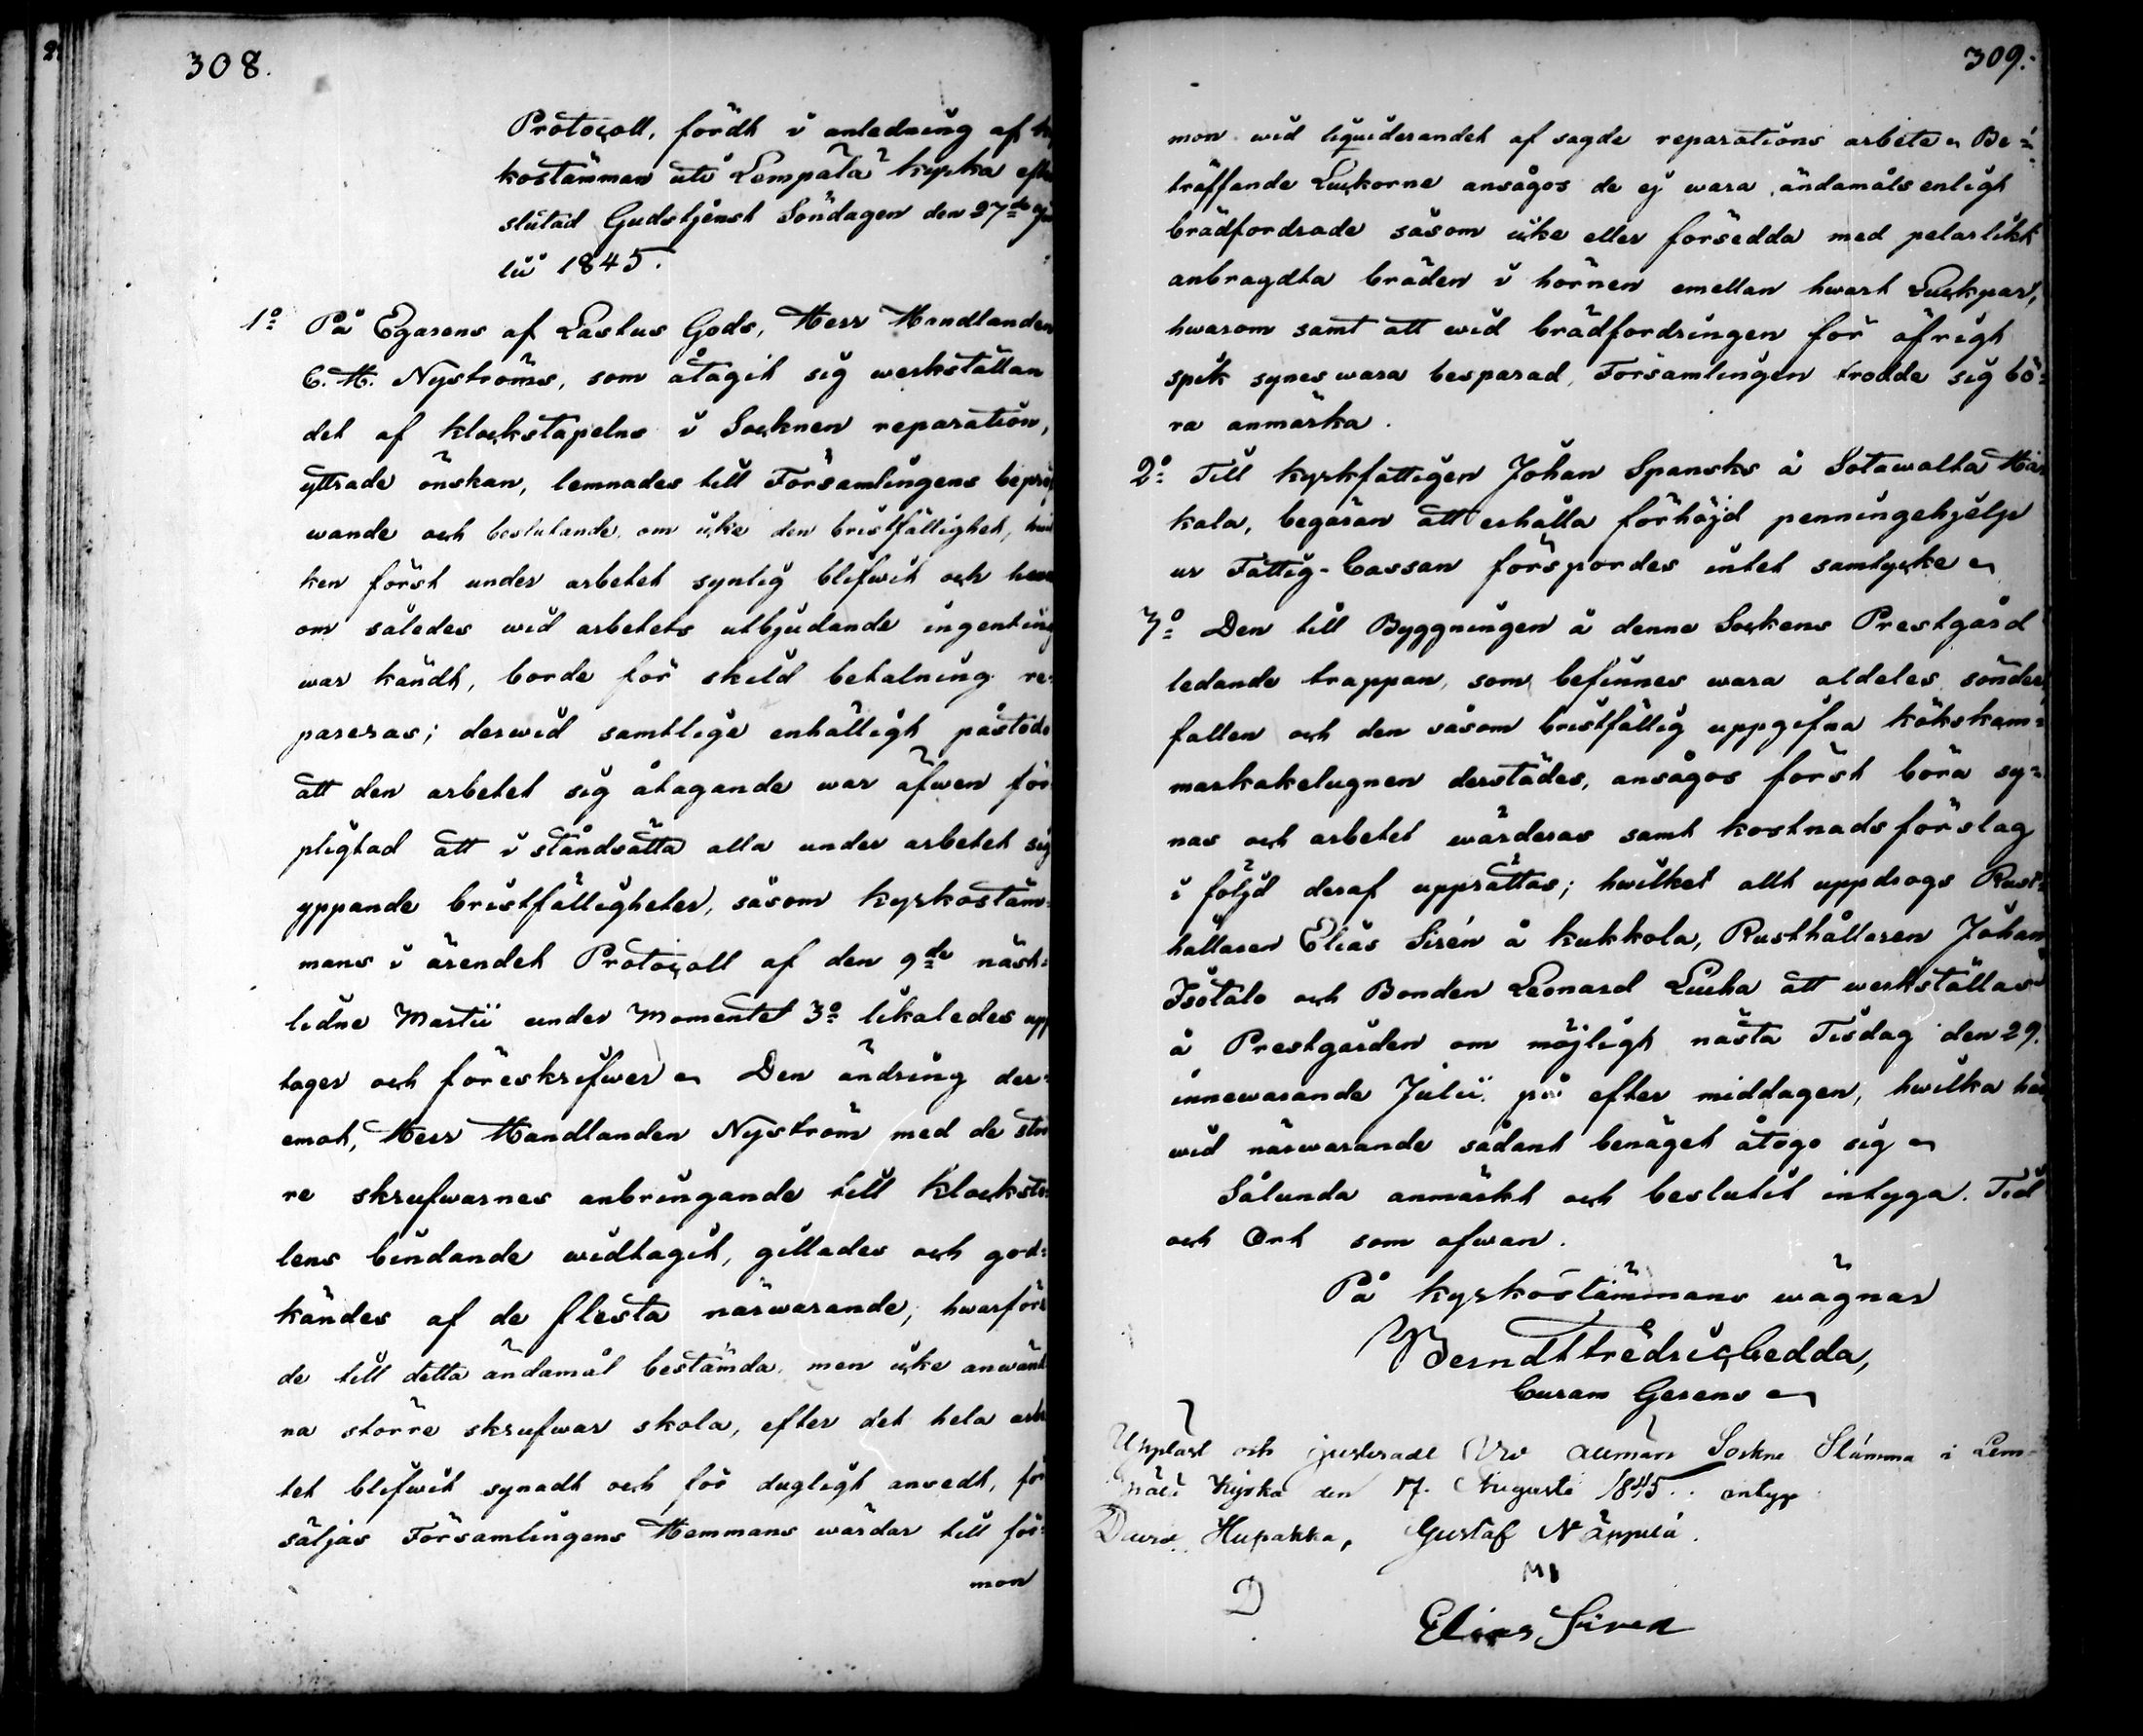 308.
Protocoll, fördt i anledning af
kostämman uti Lempälä kyrka efter
slutad Gudstjenst Söndagen den 27de Ju
lii 1845.
1o På Egarens af Lastus Gods, Herr Handlanden
C. H. Nyströms, som åtagit sig werkställan
det af klockstapelns i Socknen reparation,
yttrade önskan, lemnades till Församlingens beprö
wande och beslutande, om icke den bristfällighet, hwil
ken först under arbetet synlig blifwit och hwar
om således wid arbetets utbjudande ingenting
war kändt, borde för skild betalning re-
pareras; derwid samtlige enhälligt påstodo
att den arbetet sig åtagande war äfwen för-
pligtad att i ståndsätta alla under arbetet sig
yppande bristfälligheter, såsom kyrkostäm-
mans i ärendet Protocoll af den 9de näst-
lidne Martii under Momentet 3o likaledes upp
tager och föreskrifwer. Den ändring der-
emot, Herr Handlanden Nyström med de stör
re skrufwarnes anbringande till Klocksta-
lens bindande widtagit, gillades och god-
kändes af de flesta närwarande, hwarföre
de till detta ändamål bestämda, men icke anwänd
na större skrufwar skola, efter det hela arbe
tet blifwit synadt och för dugligt ansedt, för
säljas Församlingens Hemmans wärdar till för-
mon
309.
mon wid liquiderandet af sagde reparations arbete. Be-
träffande Luckorne ansågos de ej wara ändamålsenligt
brädfordrade såsom icke eller försedda med pelarlikt
anbragdta bräden i hörnen emellan hwart Luckpar,
hwarom samt att wid brädfordringen för öfrigt
spik synes wara besparad, Församlingen trodde sig bö-
ra anmärka.
2o Till kyrkfattigen Johan Spansks å Sotawalta Här
kala, begäran att erhålla förhöjd penningehjelp
ur Fattig-Cassan förspordes intet samtycke.
3o Den till Byggningen å denne Sockens Prestgård
ledande trappan, som befinnes wara aldeles sönder
fallen och den såsom bristfällig uppgifna kökskam-
markakelugnen derstädes, ansågos först böra sy-
nas och arbetet wärderas samt kostnadsförslag
i följd deraf upprättas; hwilket allt uppdrogs Rust-
hållaren Elias Sirén å Kukkola, Rusthållaren Johan
Isotalo och Bonden Leonard Lucka att werkställas
å Prestgården om möjligt nästa Tisdag den 29.
innewarande Julii på efter middagen, hwilka här
wid närwarande sådant benäget åtogo sig.
Sålunda anmärkt och beslutit intyga. Tid
och Ort som ofwan.
På kyrkostämmans wägnar
Berndt Fredric Gedda,
Curam Gerens
Uppläst och justeradt Vid Allmän Sockne Stämma i Lem-
pälä Kyrka den 17. Augusti 1845. intyga
David Hupakka, Gustaf Näppilä.
D
Elias Siren